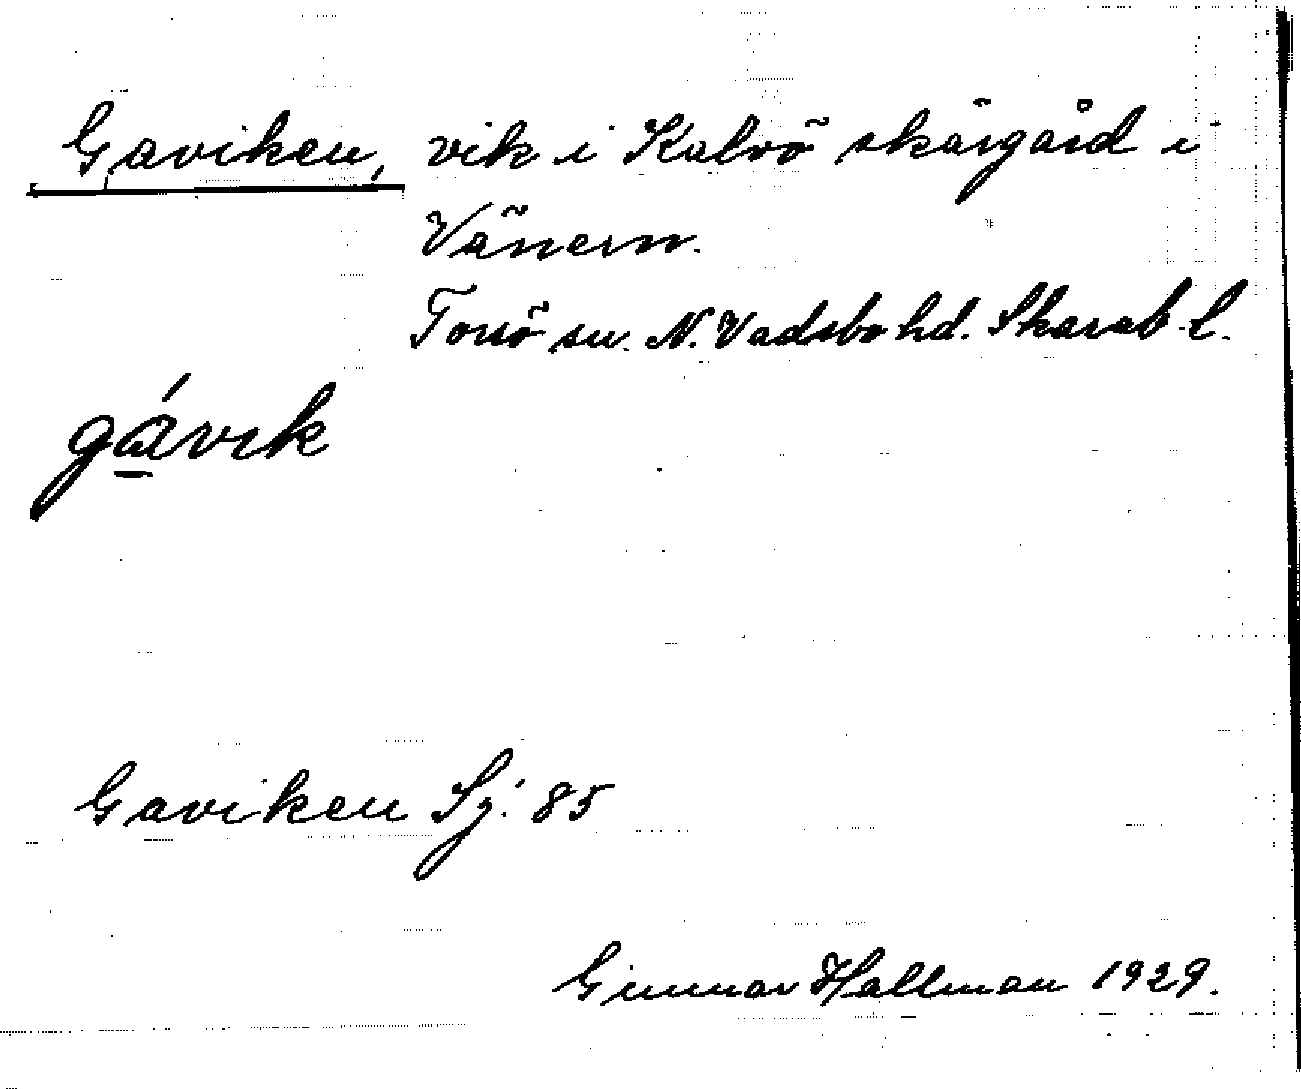 Gaviken, vik i Kalvö skärgård i
Vänern.
Torsö sn. N. Vadsbo hd. Skarab. l.
gá̱vik
Gaviken Sj. 85
Gunnar Hallman 1929.